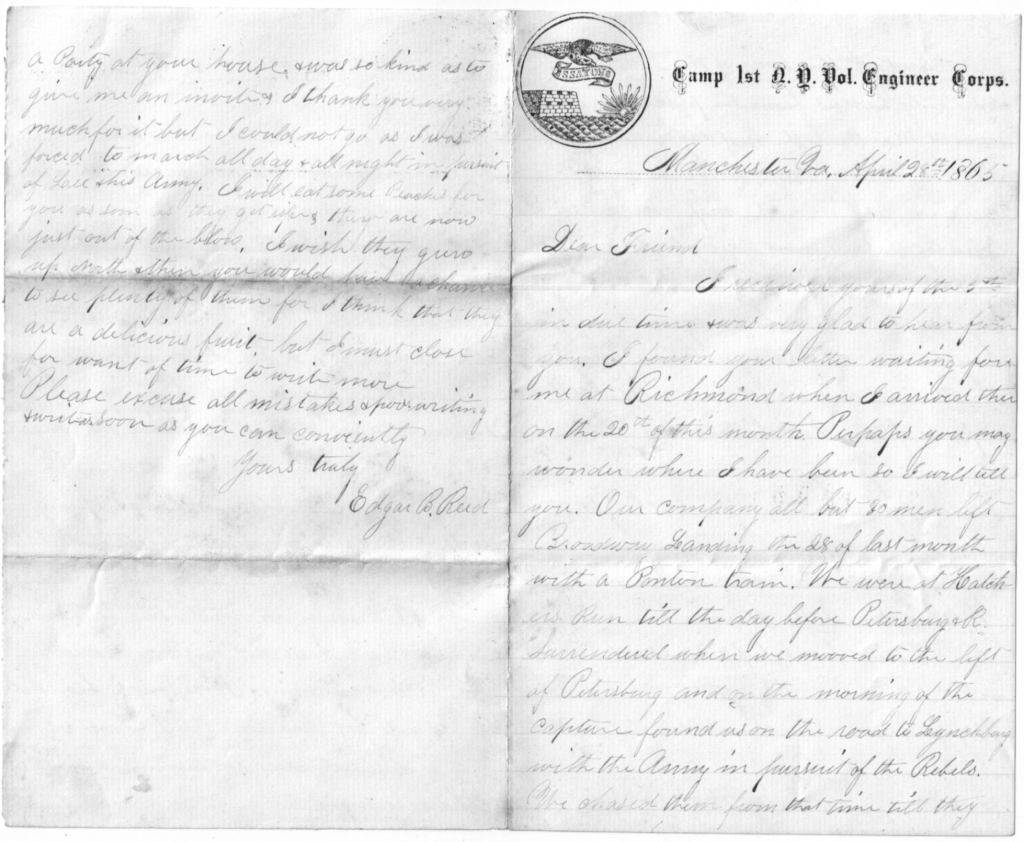 ESSAYONS
Camp 1st N. Y. Vol. Engineer Corps.
Manchester Va. April 28th 1865
Dear Friend
I received yours of the
in due time & was very glad to hear from
you. I found your letter waiting for
me at Richmond when I arrived ther
on the 20th of this month. Perpaps you may
wonder where I have been so I will tell
you. Our company all but men left
Broadway Landing the 28 of last month
with a Ponton train. We were at Hatch
ers Run till the day before Petersburg & R.
Surrendered when we mooved to the left
of Petersburg and on the morning of the
capture found us on the road to Lynchburg
with the Army in pursuit of the Rebels.
We chased them from that time till they
a Party at your house, & was so kind as to
give me an invite & I thank you very
much for it but I could not go as I was
forced to march all day & all night in pursuit
of Lee & his Army. I will eat some Peaches for
you as soon as they get ripe, they are now
just out of the blow. I wish they grew
up North & then you would have a chance
to see plenty of them for I think that they
are a delicious fruit but I must close
for want of time to write more
Please excuse all mistakes & poor writing
& write as soon as you can conviently
Yours truly
Edgar B. Reed